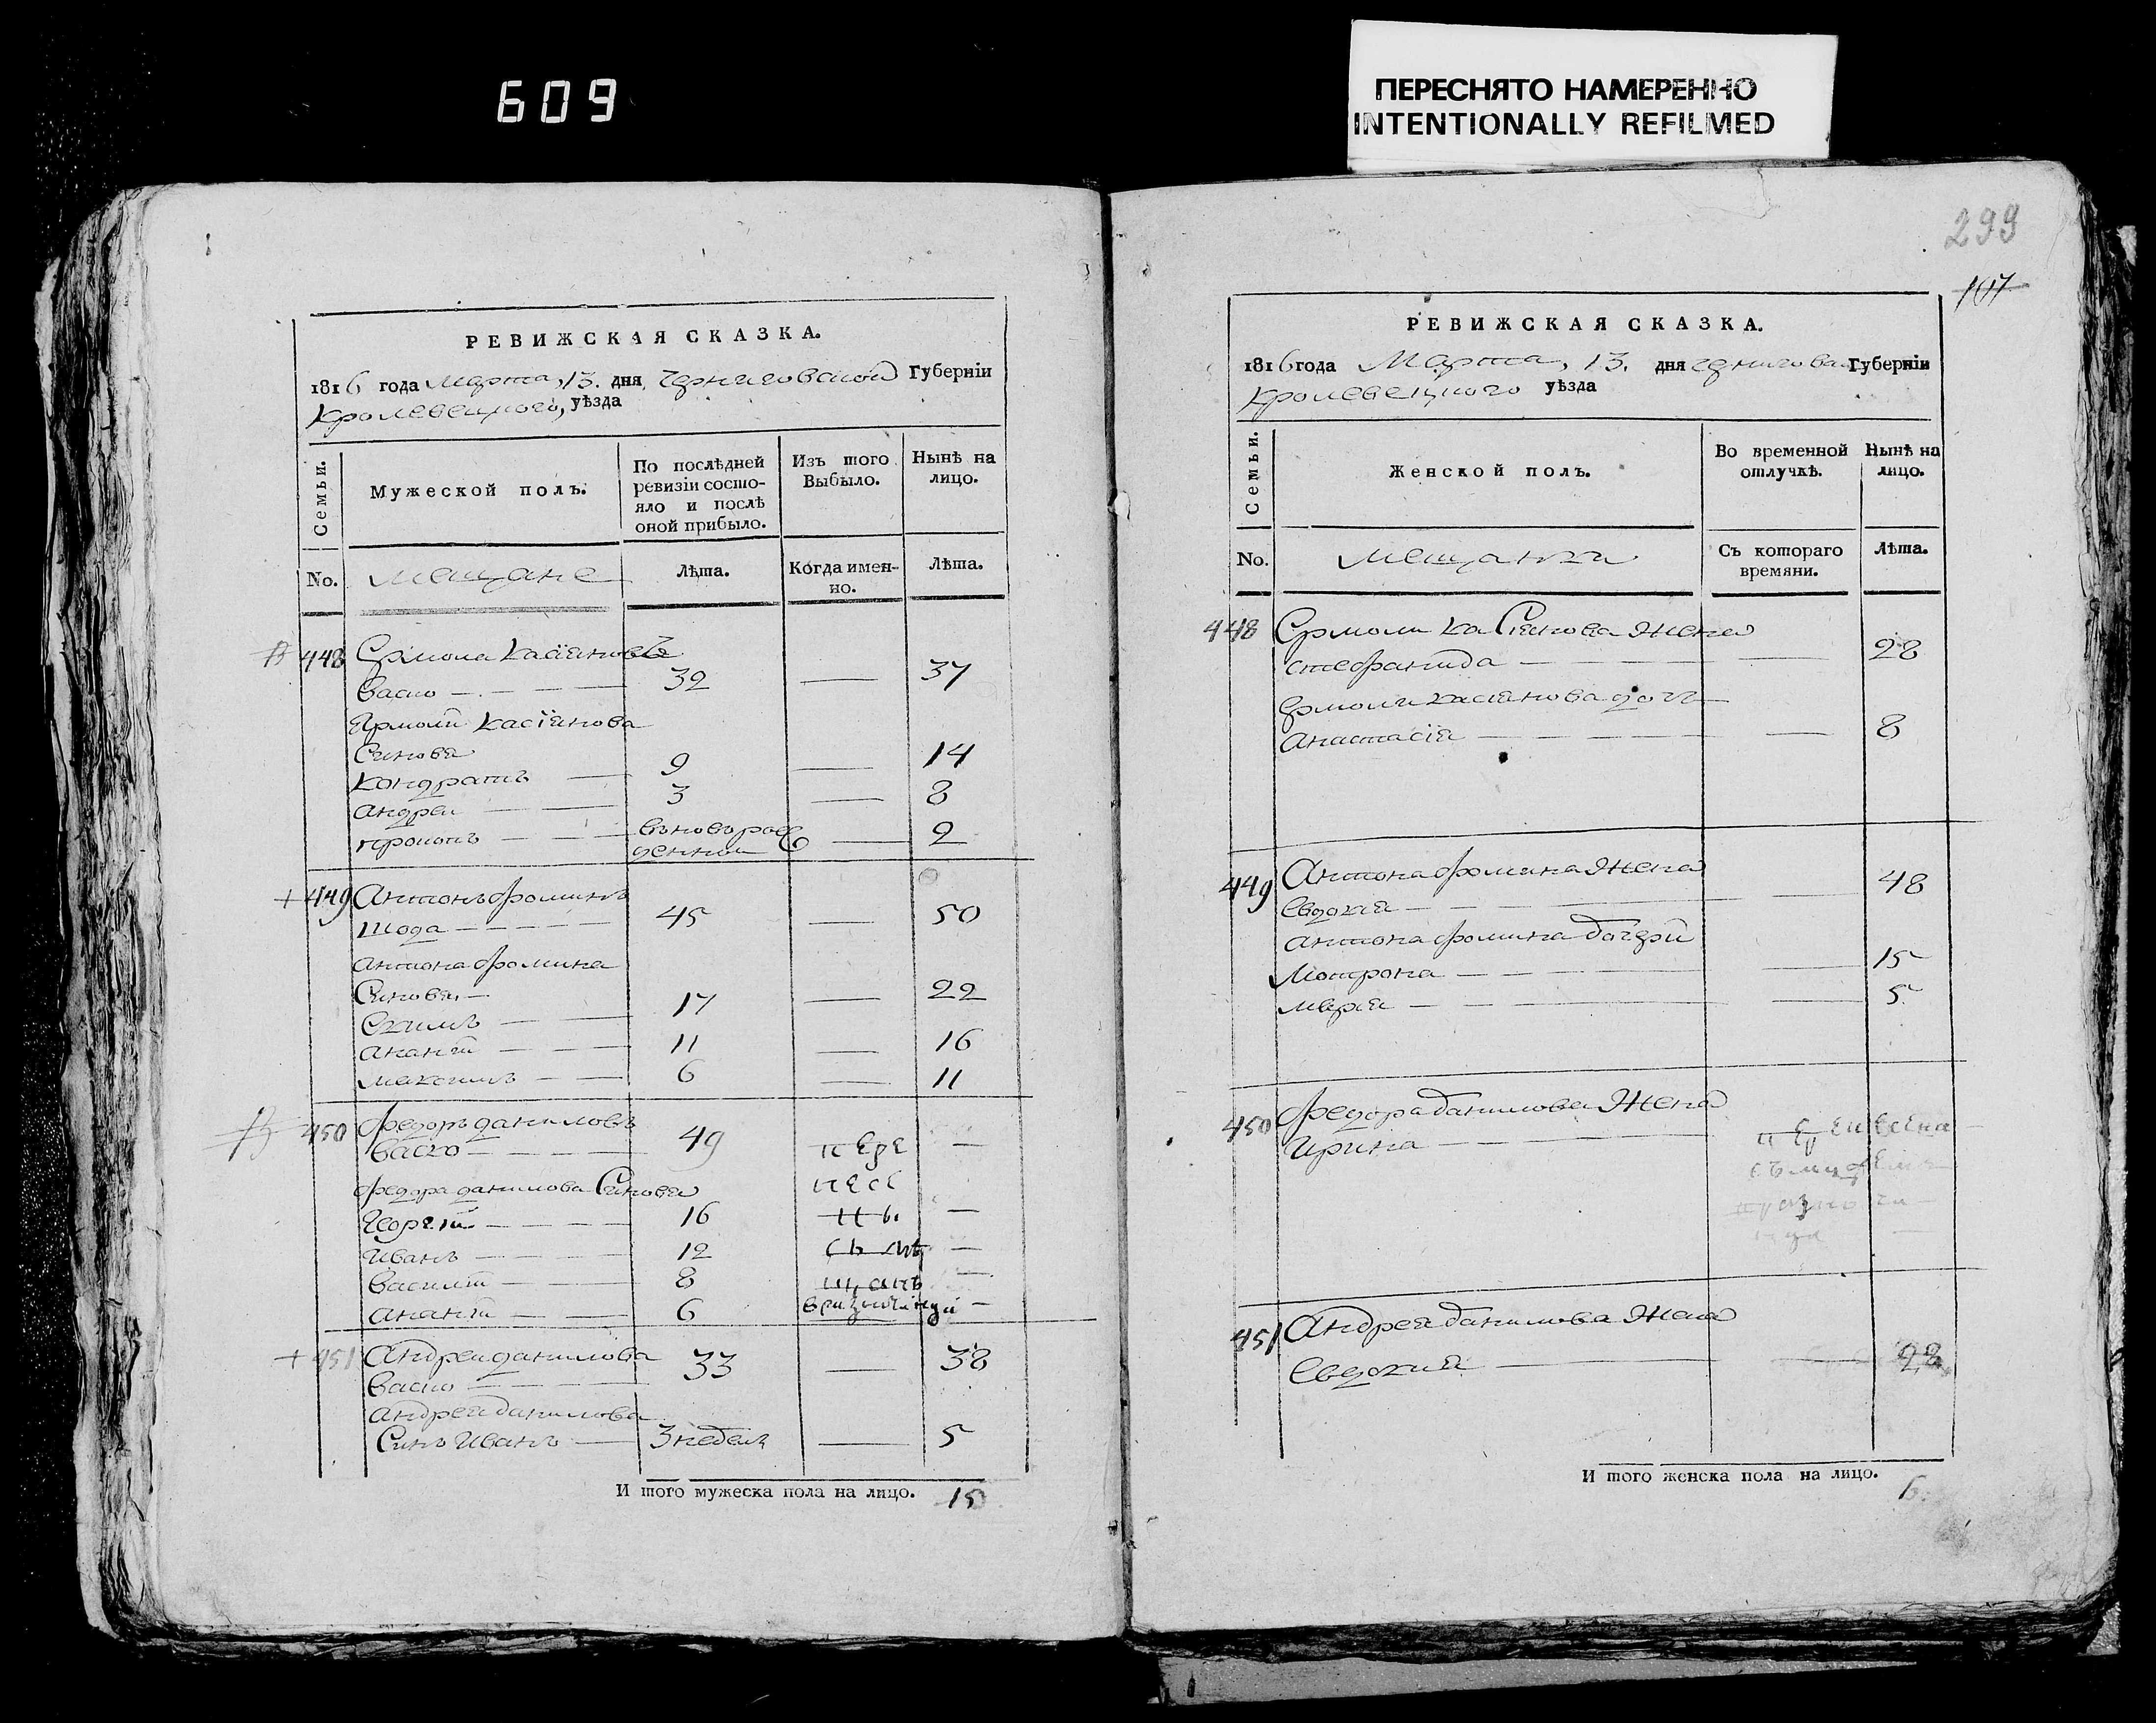 609
ПЕРЕСНЯТО НАМЕРЕННО
INTENTIONALLY REFILMED
РЕВИЖСКАЯ СКАЗКА.
1816 года Марта, 13. дня, Черниговской Губерніи
Кролевецкого, уѣзда
Семьи.
Мужеской полъ.
По послѣдней ревизіи состояло и послѣ оной прибыло.
Изъ того Выбыло.
Нынѣ на лицо.
No.
Мещане
Лѣта.
Когда именно.
Лѣта.
448 Ермола Касіяновъ
Васко — 32 — 37
Ярмоли Касіянова
Синовя
Кондратъ — 9 — 14
Андреи — 3 — 8
Прокопъ — вьноворожденни — 2
449 Антонъ Фоминъ
Шода — 45 — 50
Антона Фомина
Синовя —
Екимъ — 17 — 22
Ананій — 11 — 16
Максимъ — 6 — 11
450 Федоръ Даниловъ
Васко — 49 пере —
Федора Данилова Синовя
Георгій — 16 —
Иванъ — 12 —
Василій — 8 щанъ —
Ананій — 6 —
451 Андреи Данилова
Васко — 33 — 38
Андрея Данилова
Синъ Иванъ — 3 недели — 5
И того мужеска пола на лицо. 15
299
107
РЕВИЖСКАЯ СКАЗКА.
1816 года Марта, 13. дня Губерніи
Кролевецкого уѣзда
Семьи.
Женской полъ.
Во временной отлучкѣ.
Нынѣ на лицо.
No.
Мещанки
Съ котораго времяни.
Лѣта.
448 Ермоли Касіянова Жена
Стефанида — 28
Ермоли Касіянова дочъ
Анастасія — 8
449 Антона Фомина Жена
Евдокия — 48
Антона Фомина дочери
Мотрона — 15
Марія — 5
450 Федора Данилова Жена
Ирина —
451 Андрея Данилова Жена
Евдокия — 28
И того женска пола на лицо. 6.